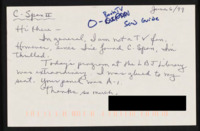 C-Span II
June 6/99
Hi there -
In general, I am not a TV fan.
However, since I've found C Span, I'm
thrilled.
Today's program at the LBJ Library
was extraordinary. I was glued to my
seat. Your panel was A+.
Thanks so much.